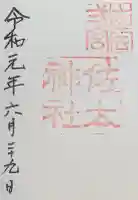 佐太
神社
令和元年六月二十九日